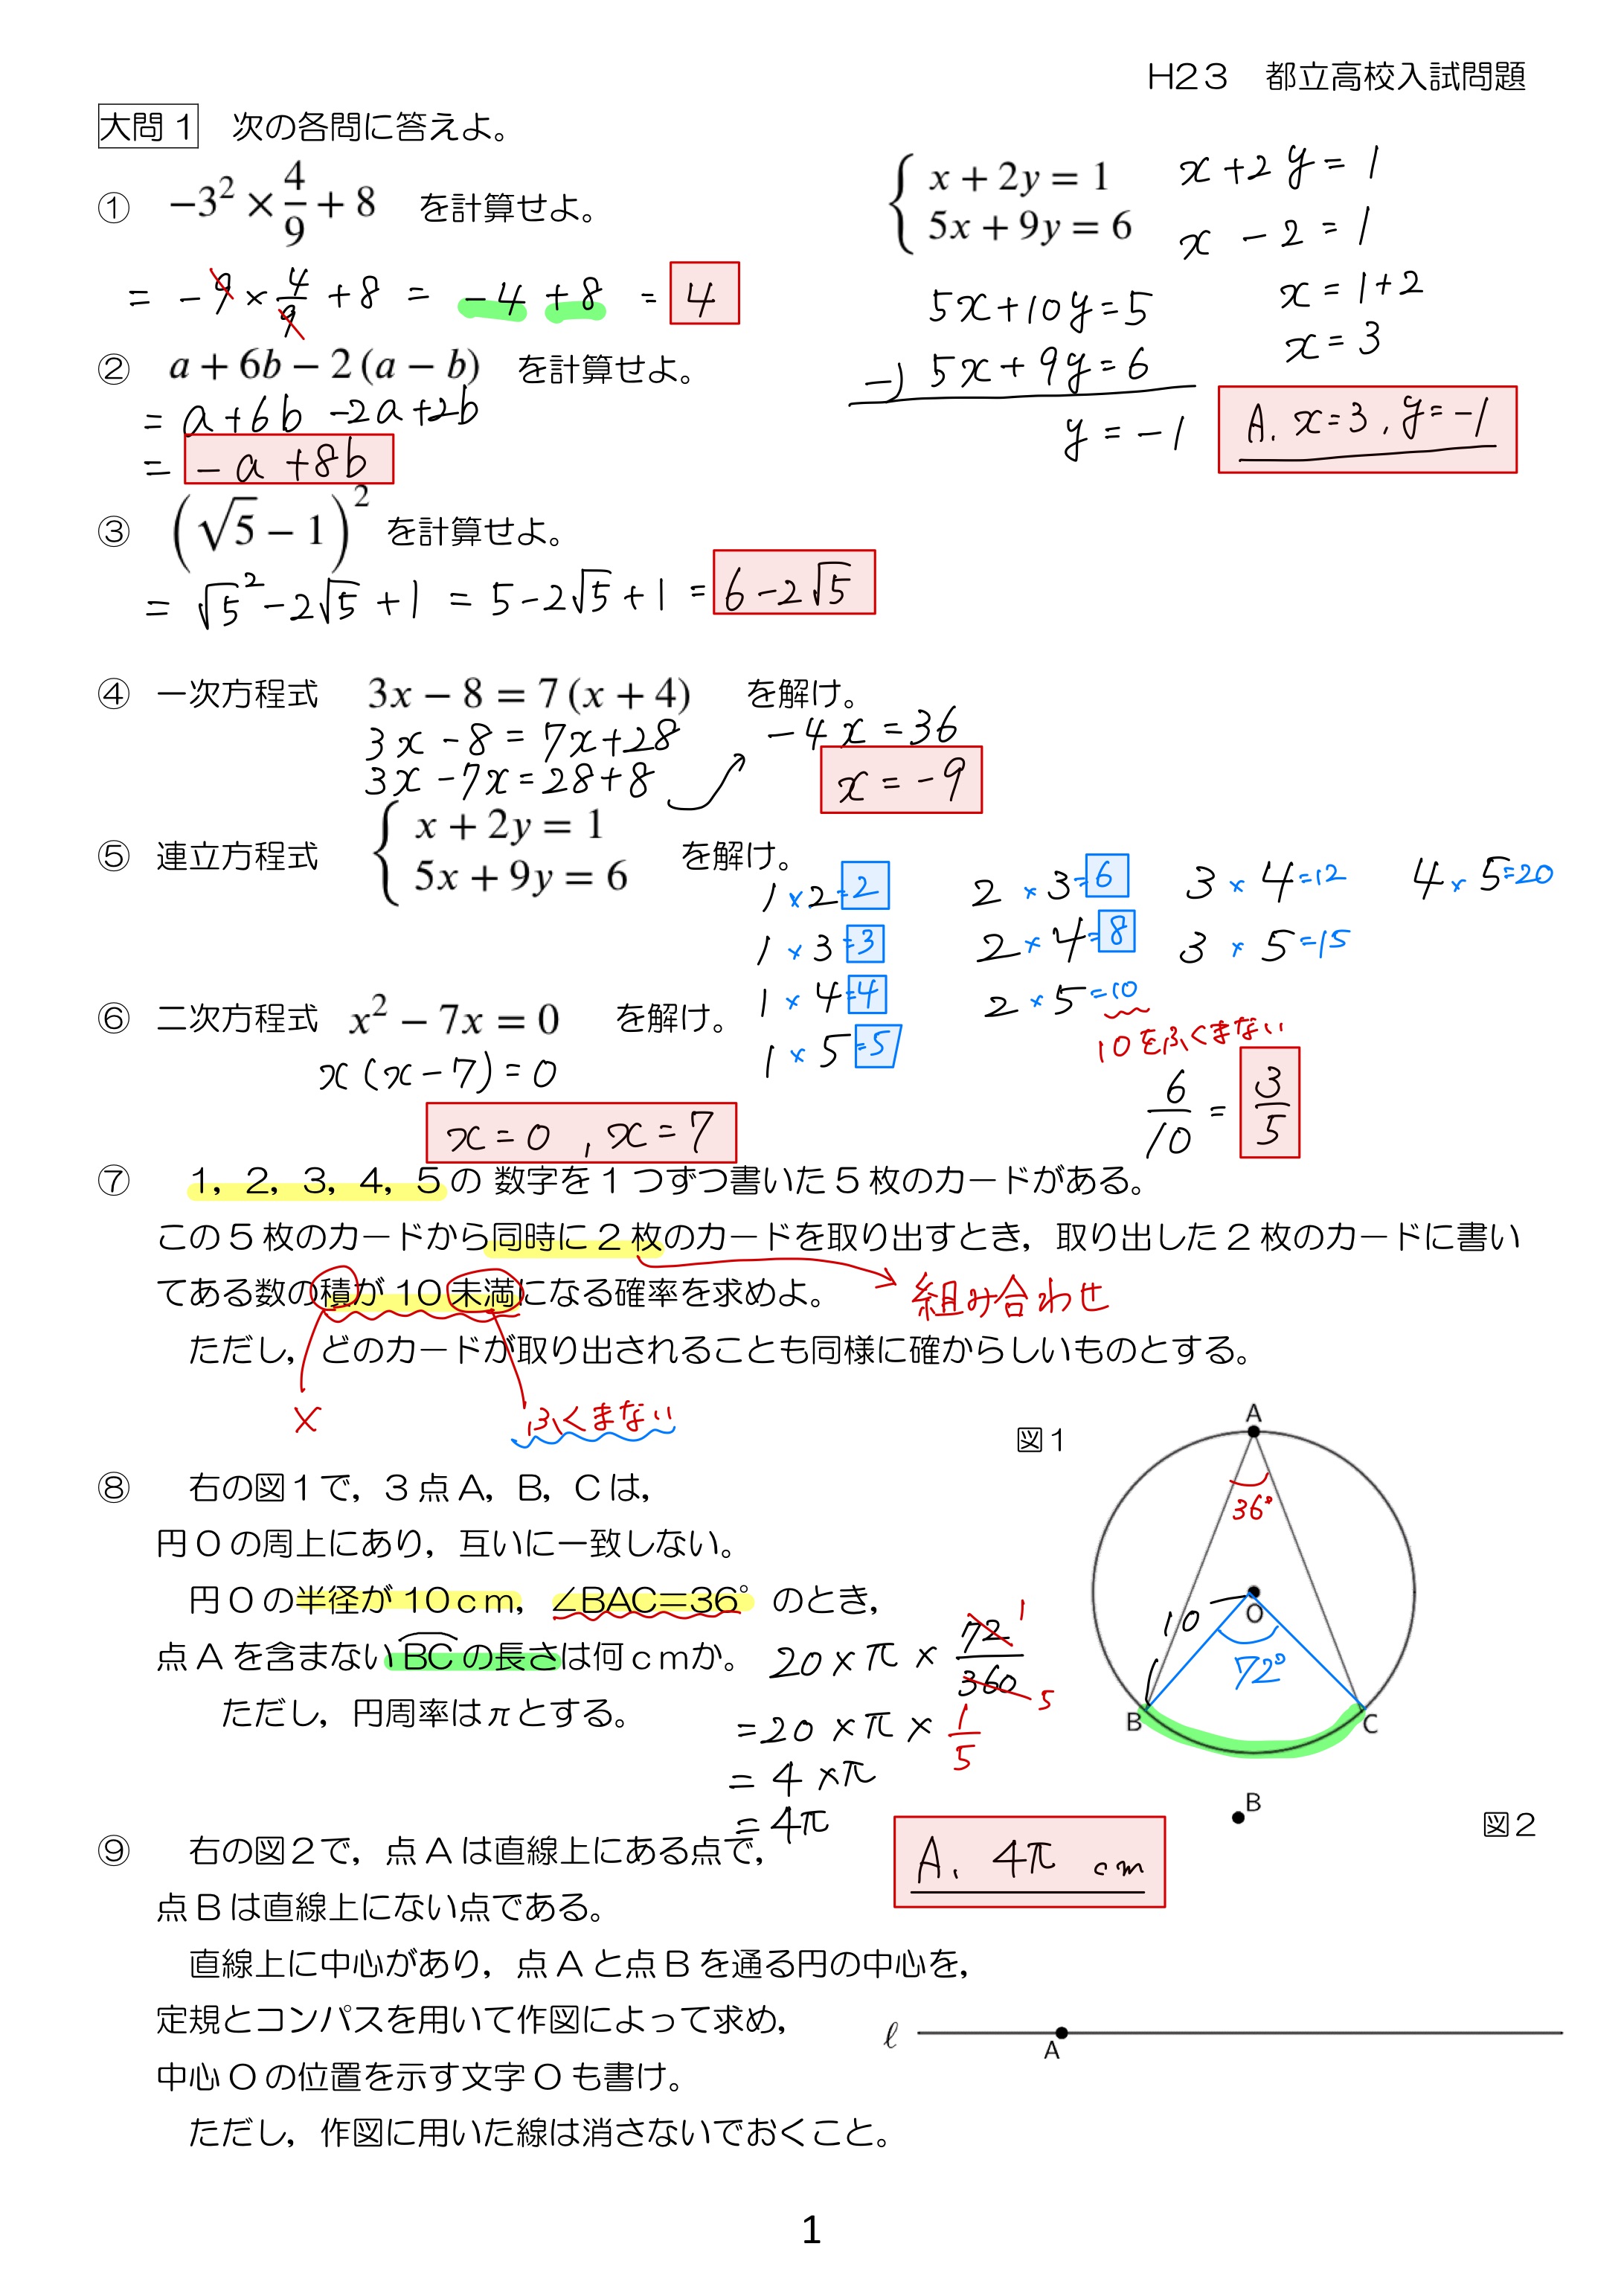 H23　都立高校入試問題
大問1　次の各問に答えよ。
①　-3² × 4/9 + 8　を計算せよ。
= -9 × 4/9 + 8 = -4 + 8 = 4
②　a + 6b - 2(a - b)　を計算せよ。
= a + 6b - 2a + 2b
= -a + 8b
③　(√5 - 1)²　を計算せよ。
= √5² - 2√5 + 1 = 5 - 2√5 + 1 = 6 - 2√5
④　一次方程式　3x - 8 = 7(x + 4)　を解け。
3x - 8 = 7x + 28
3x - 7x = 28 + 8
-4x = 36
x = -9
⑤　連立方程式　{ x + 2y = 1
5x + 9y = 6　を解け。
{ x + 2y = 1
5x + 9y = 6
5x + 10y = 5
-) 5x + 9y = 6
y = -1
x + 2y = 1
x - 2 = 1
x = 1 + 2
x = 3
A. x = 3, y = -1
⑥　二次方程式　x² - 7x = 0　を解け。
x(x - 7) = 0
x = 0, x = 7
1 × 2 = 2
1 × 3 = 3
1 × 4 = 4
1 × 5 = 5
2 × 3 = 6
2 × 4 = 8
2 × 5 = 10
10をふくまない
3 × 4 = 12
3 × 5 = 15
4 × 5 = 20
6/10 = 3/5
⑦　1，2，3，4，5の 数字を1つずつ書いた5枚のカードがある。
この5枚のカードから同時に2枚のカードを取り出すとき，取り出した2枚のカードに書い
てある数の積が10未満になる確率を求めよ。
組み合わせ
ただし，どのカードが取り出されることも同様に確からしいものとする。
×
ふくまない
⑧　右の図1で，3点A，B，Cは，
円Oの周上にあり，互いに一致しない。
円Oの半径が10cm，∠BAC＝36°のとき，
点Aを含まない BC の長さは何cmか。
ただし，円周率はπとする。
20 × π × 72/360 1 5
= 20 × π × 1/5
= 4 × π
= 4π
A. 4π cm
図1
A
36°
O
10
72°
B
C
⑨　右の図2で，点Aは直線上にある点で，
点Bは直線上にない点である。
直線上に中心があり，点Aと点Bを通る円の中心を，
定規とコンパスを用いて作図によって求め，
中心Oの位置を示す文字Oも書け。
ただし，作図に用いた線は消さないでおくこと。
B
図2
ℓ
A
1